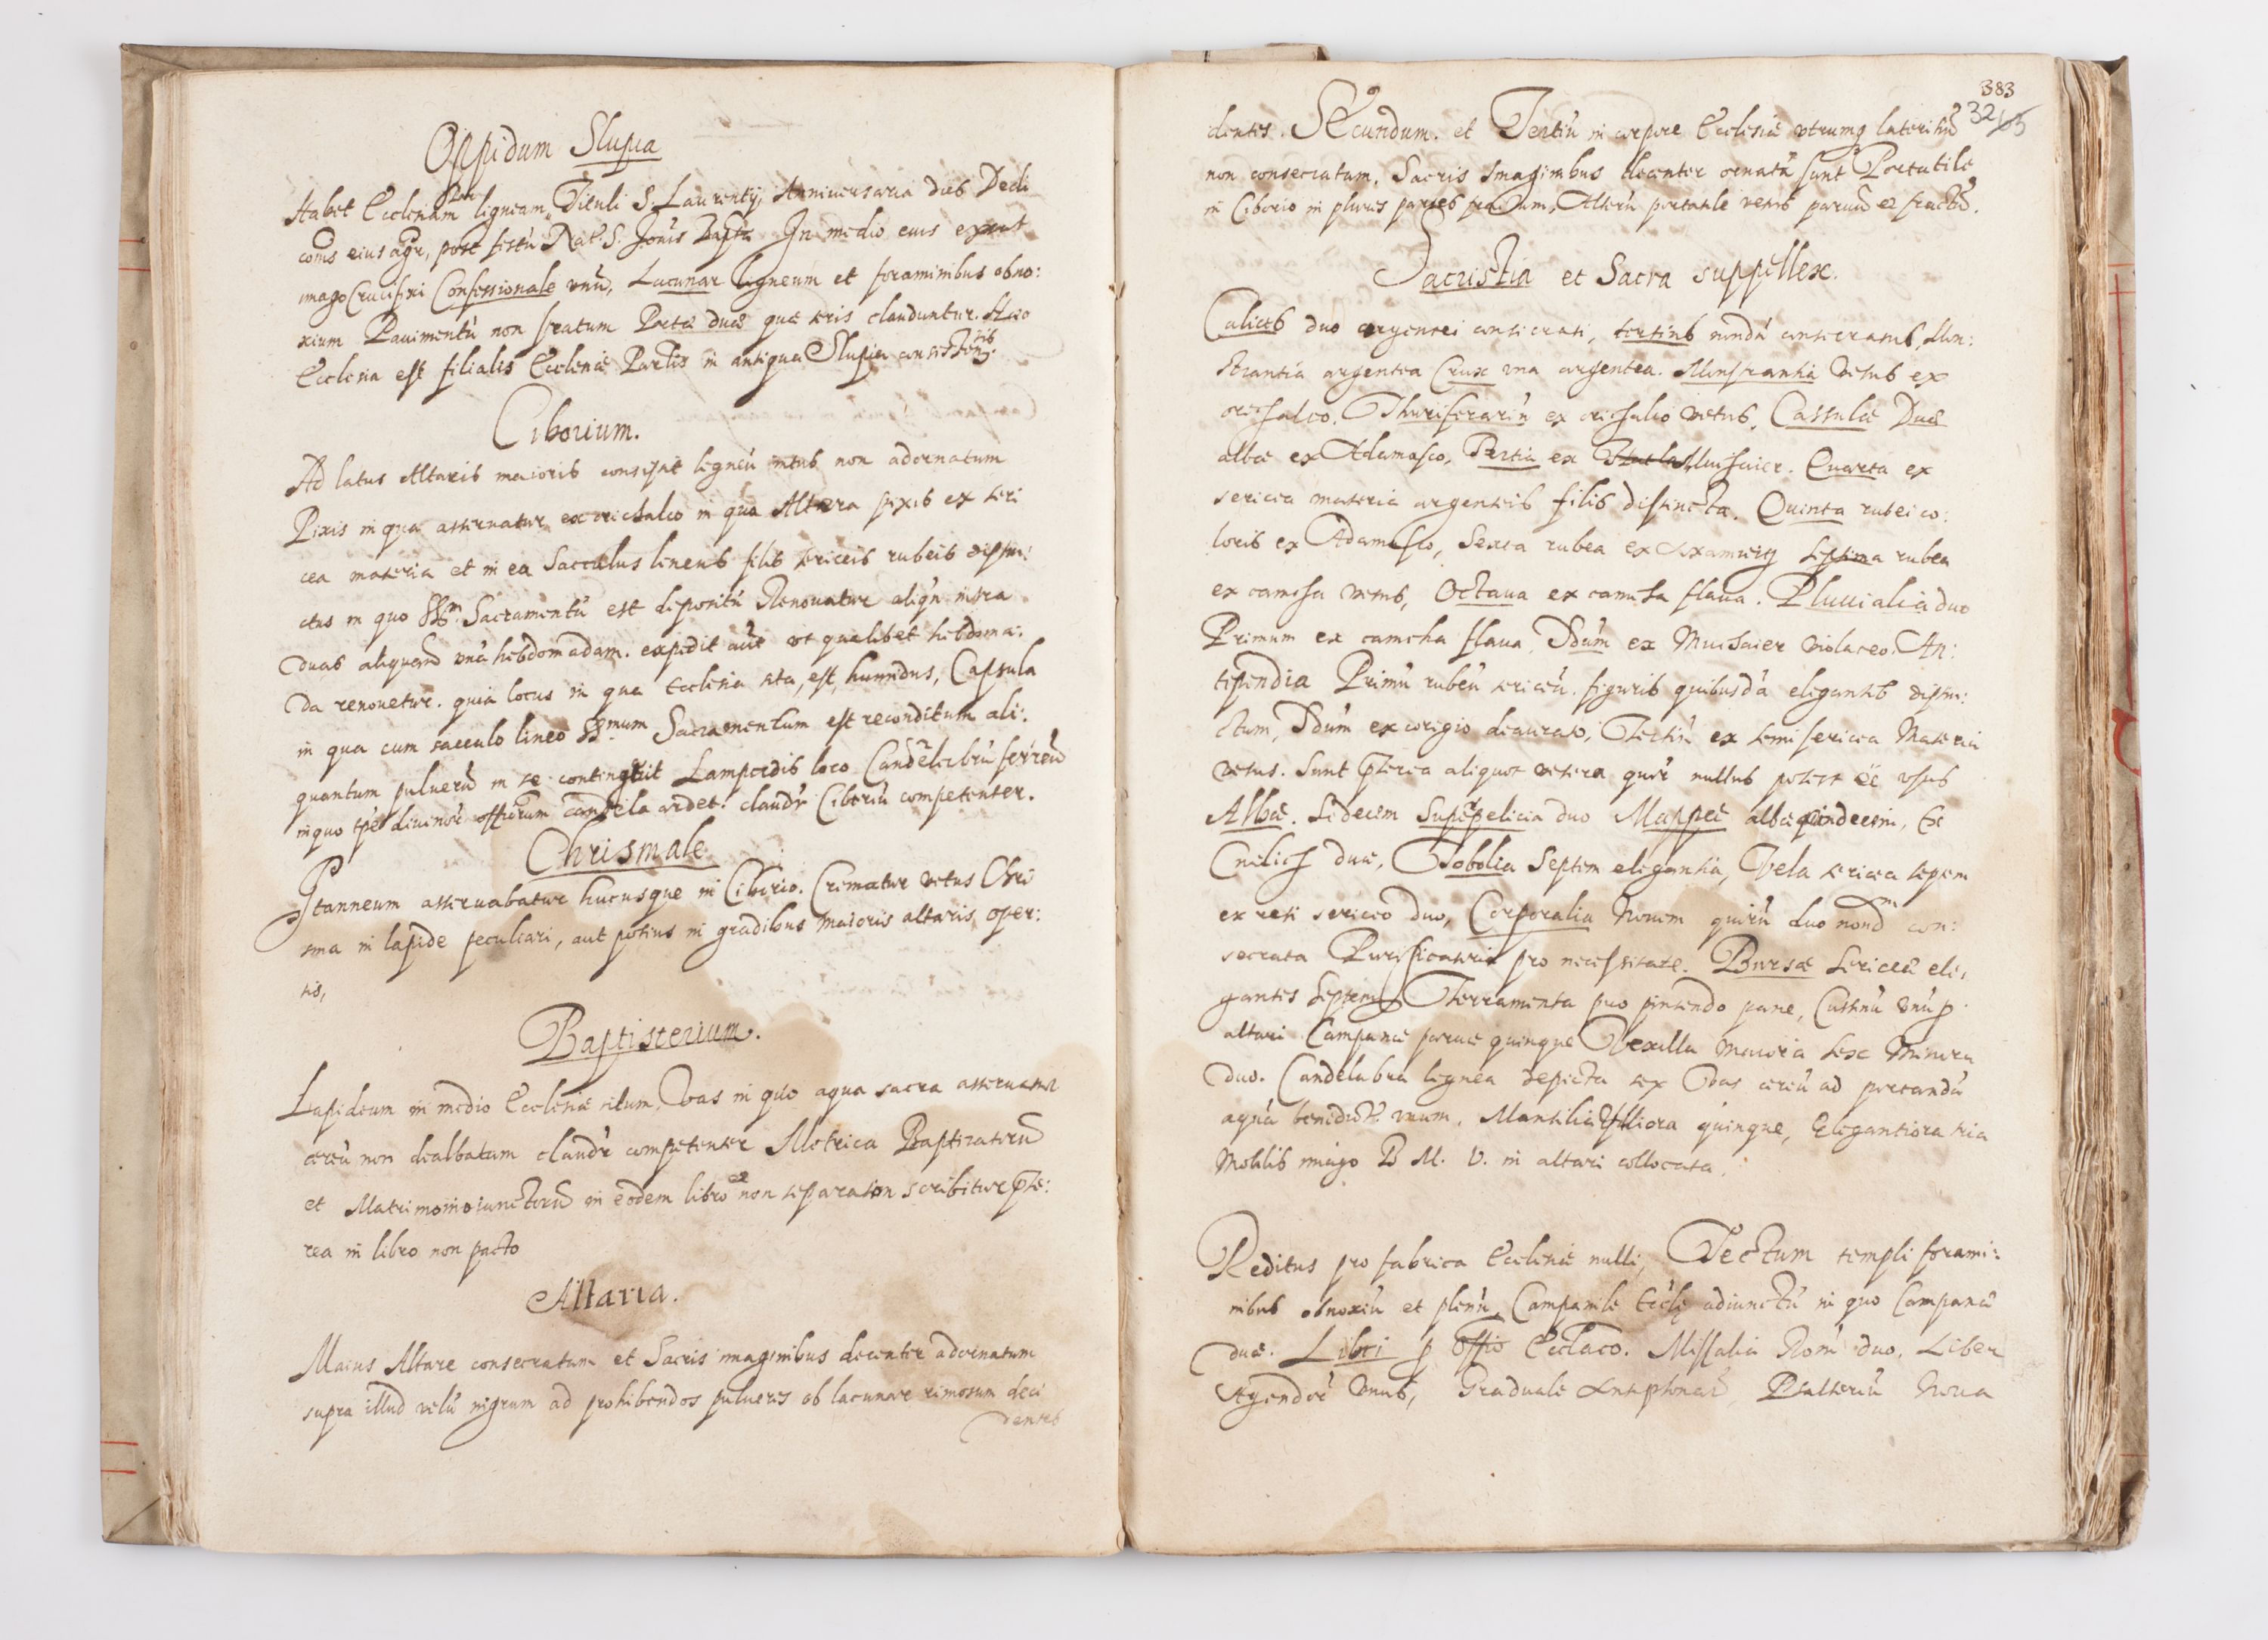 Oppidum Slupia
Habet Ecclesiam ligneam, Tituli S. Laurentij, Anniuersaria dies Dedi
cois eius agr, post festū Nat. S. Joñis Bapt. In medio eius extat
imago Crucifixi Confessionale vnū, Lacunar ligneum et foraminibus obno:
xium Pauimentū non stratum Portæ duæ quæ seris clauduntur. Hæc
Ecclesia est filialis Ecclesiæ Partis in antiqua Slupia consistentis.
Ciborium.
Ad latus Altaris maioris consistit ligneū intus non adornatum
Pixis in qua asseruatur ex orichalco in qua Altera pixis ex seri
cea materia et in ea Sacculus lineus filis sericeis rubeis distin:
ctus in quo SSm. Sacramentū est depositū Renouatur aliqñ intra
duas aliquañ vnā hebdomadam. expedit aūt vt qualibet hebdoma:
da renouetur. quia locus in qua Ecclesia sita, est humidus, Capsula
in qua cum sacculo lineo SSmum Sacramentum est reconditum ali:
quantum puluerū in se continebat Lampadis loco Candelabrū ferreū
in quo tpe diuinorū officiorum candela ardet. claudr Ciboriū competenter.
Chrismale
Stanneum asseruabatur hucusque in Ciborio. Crematur vetus Chri
sma in lapide peculiari, aut potius in gradibus maioris altaris oper:
tis,
Baptisterium.
Lapideum in medio Ecclesiæ situm, Vas in quo aqua sacra asseruatur
æreū non dealbatum claudr competenter Metrica Baptizatorū
et Matrimonio iunctorū in eodem libro non separatim scribitur ꝑte:
rea in libro non pacto
Altaria.
Maius Altare consecratum et Sacris imaginibus decenter adornatum
supra illud velū nigrum ad prohibendos pulueres ob lacunar rimosum deci
dentes
383
32
dentes. SEcundum. et Tertiū in corpore Ecclesiæ vtrumq lateritiū
non consecratum. Sacris Imaginibus decenter ornata sunt Portatile
in Ciborio in plures partes fractum, Alterū portatile vetus paruū et fractū.
Sacristia et Sacra suppellex.
Calices duo argentei consecrati, tertius nondū consecratus, Mon:
strantia argentea Crux vna argentea. Monstrantia vetus ex
orichalco. Thuriferariū ex orichalco vetus. Cassulæ Duæ
albæ ex Adamasco, Tertia ex Muchaier. Quarta ex
sericea materia argenteis filis distincta. Quinta rubei co:
loris ex Adamasco, Sexta rubea ex Axamicij Septima rubea
ex camcha vetus, Octaua ex camcha flaua. Pluuialia duo
Primum ex camcha flaua, Sdūm ex Muchaier violaceo. An:
tipendia Primū rubeū sericeū. figuris quibusdā elegantib distin:
ctum, Sdūm ex corigio deaurato, Tertiū ex semisericea Materia
vetus. Sunt ꝑterea aliquot vetera quor nullus potest eē vsus
Albæ. Sedecim Supēpelicia duo Mappæ albæ quindecim, Ex
Cnelich duæ, Tobolia Septem elegantia, Vela sericea septem
ex reti sericeo duo, Corporalia Nouem quorū duo nondm con:
secrata Purificatoria pro necessitate. Bursæ Sericeæ ele,
gantes Septem, Ferramenta pro pinsendo pane, Cussinū vnū ꝓ
altari Campanæ paruæ quinque Vexilla Maiora sex Minora
duo. Candelabra lignea depicta sex Vas æreū ad portandū
aquā benedictā vnum. Mantilia Vtiliora quinque, Elegantiora tria
Mobilis imago B M. V. in altari collocata.
Reditus pro fabrica Ecclesiæ nulli, Tectum templi forami:
nibus obnoxiū et plenū Campanile Eccle adiunctū in quo Campanæ
duæ. Libri ꝓ offio Ecclaco. Missalia Rom duo, Liber
Agendor vnus, Graduale Antiphonar Psalteriū Noua